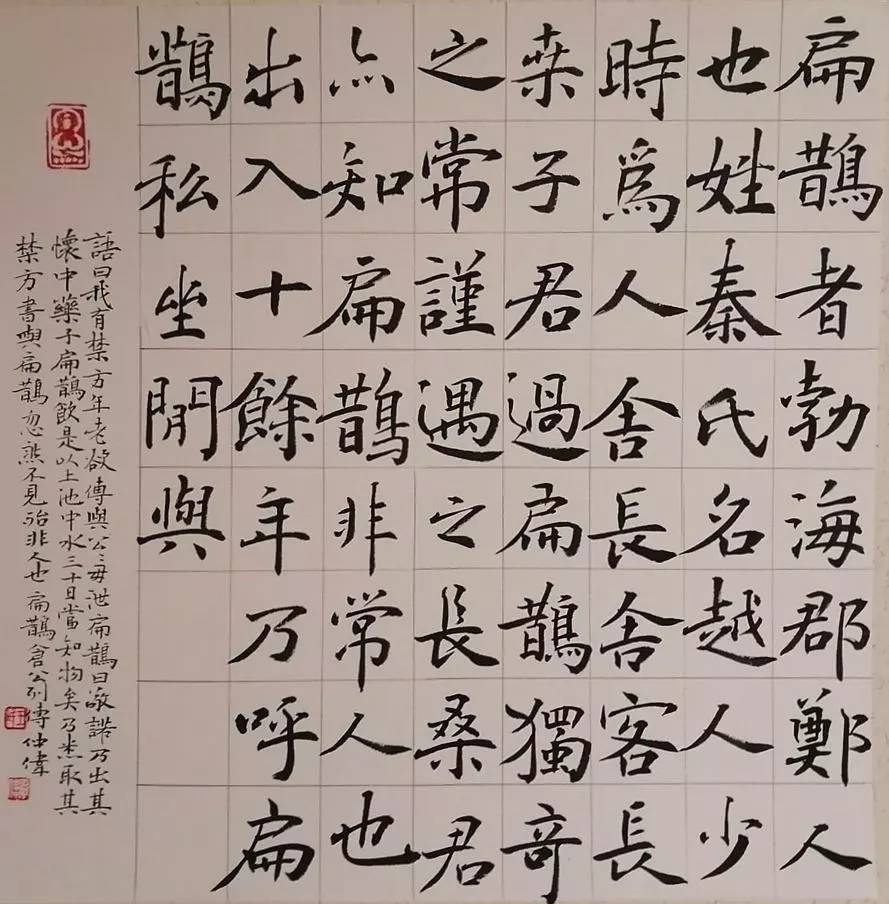 扁鵲者勃海郡鄭人
也姓秦氏名越人少
時爲人舍長舍客長
桒子君過扁鵲獨奇
之常謹遇之長桑君
亦知扁鵲非常人也
出入十餘年乃呼扁
鵲私坐閒與
語曰我有禁方年老欲傳與公〻毋泄扁鵲曰敬諾乃出其
懷中藥予扁鵲飲是以上池中水三十日當知物矣乃悉取其
禁方書與扁鵲忽然不見殆非人也扁鵲倉公列傳仲偉